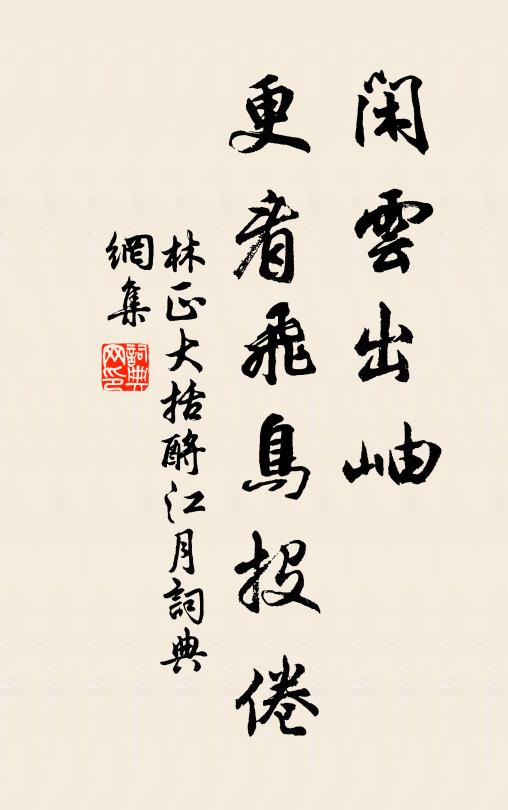 閑雲出岫
更看飛鳥投倦
林正大括酹江月詞典
網集
詞典
网印